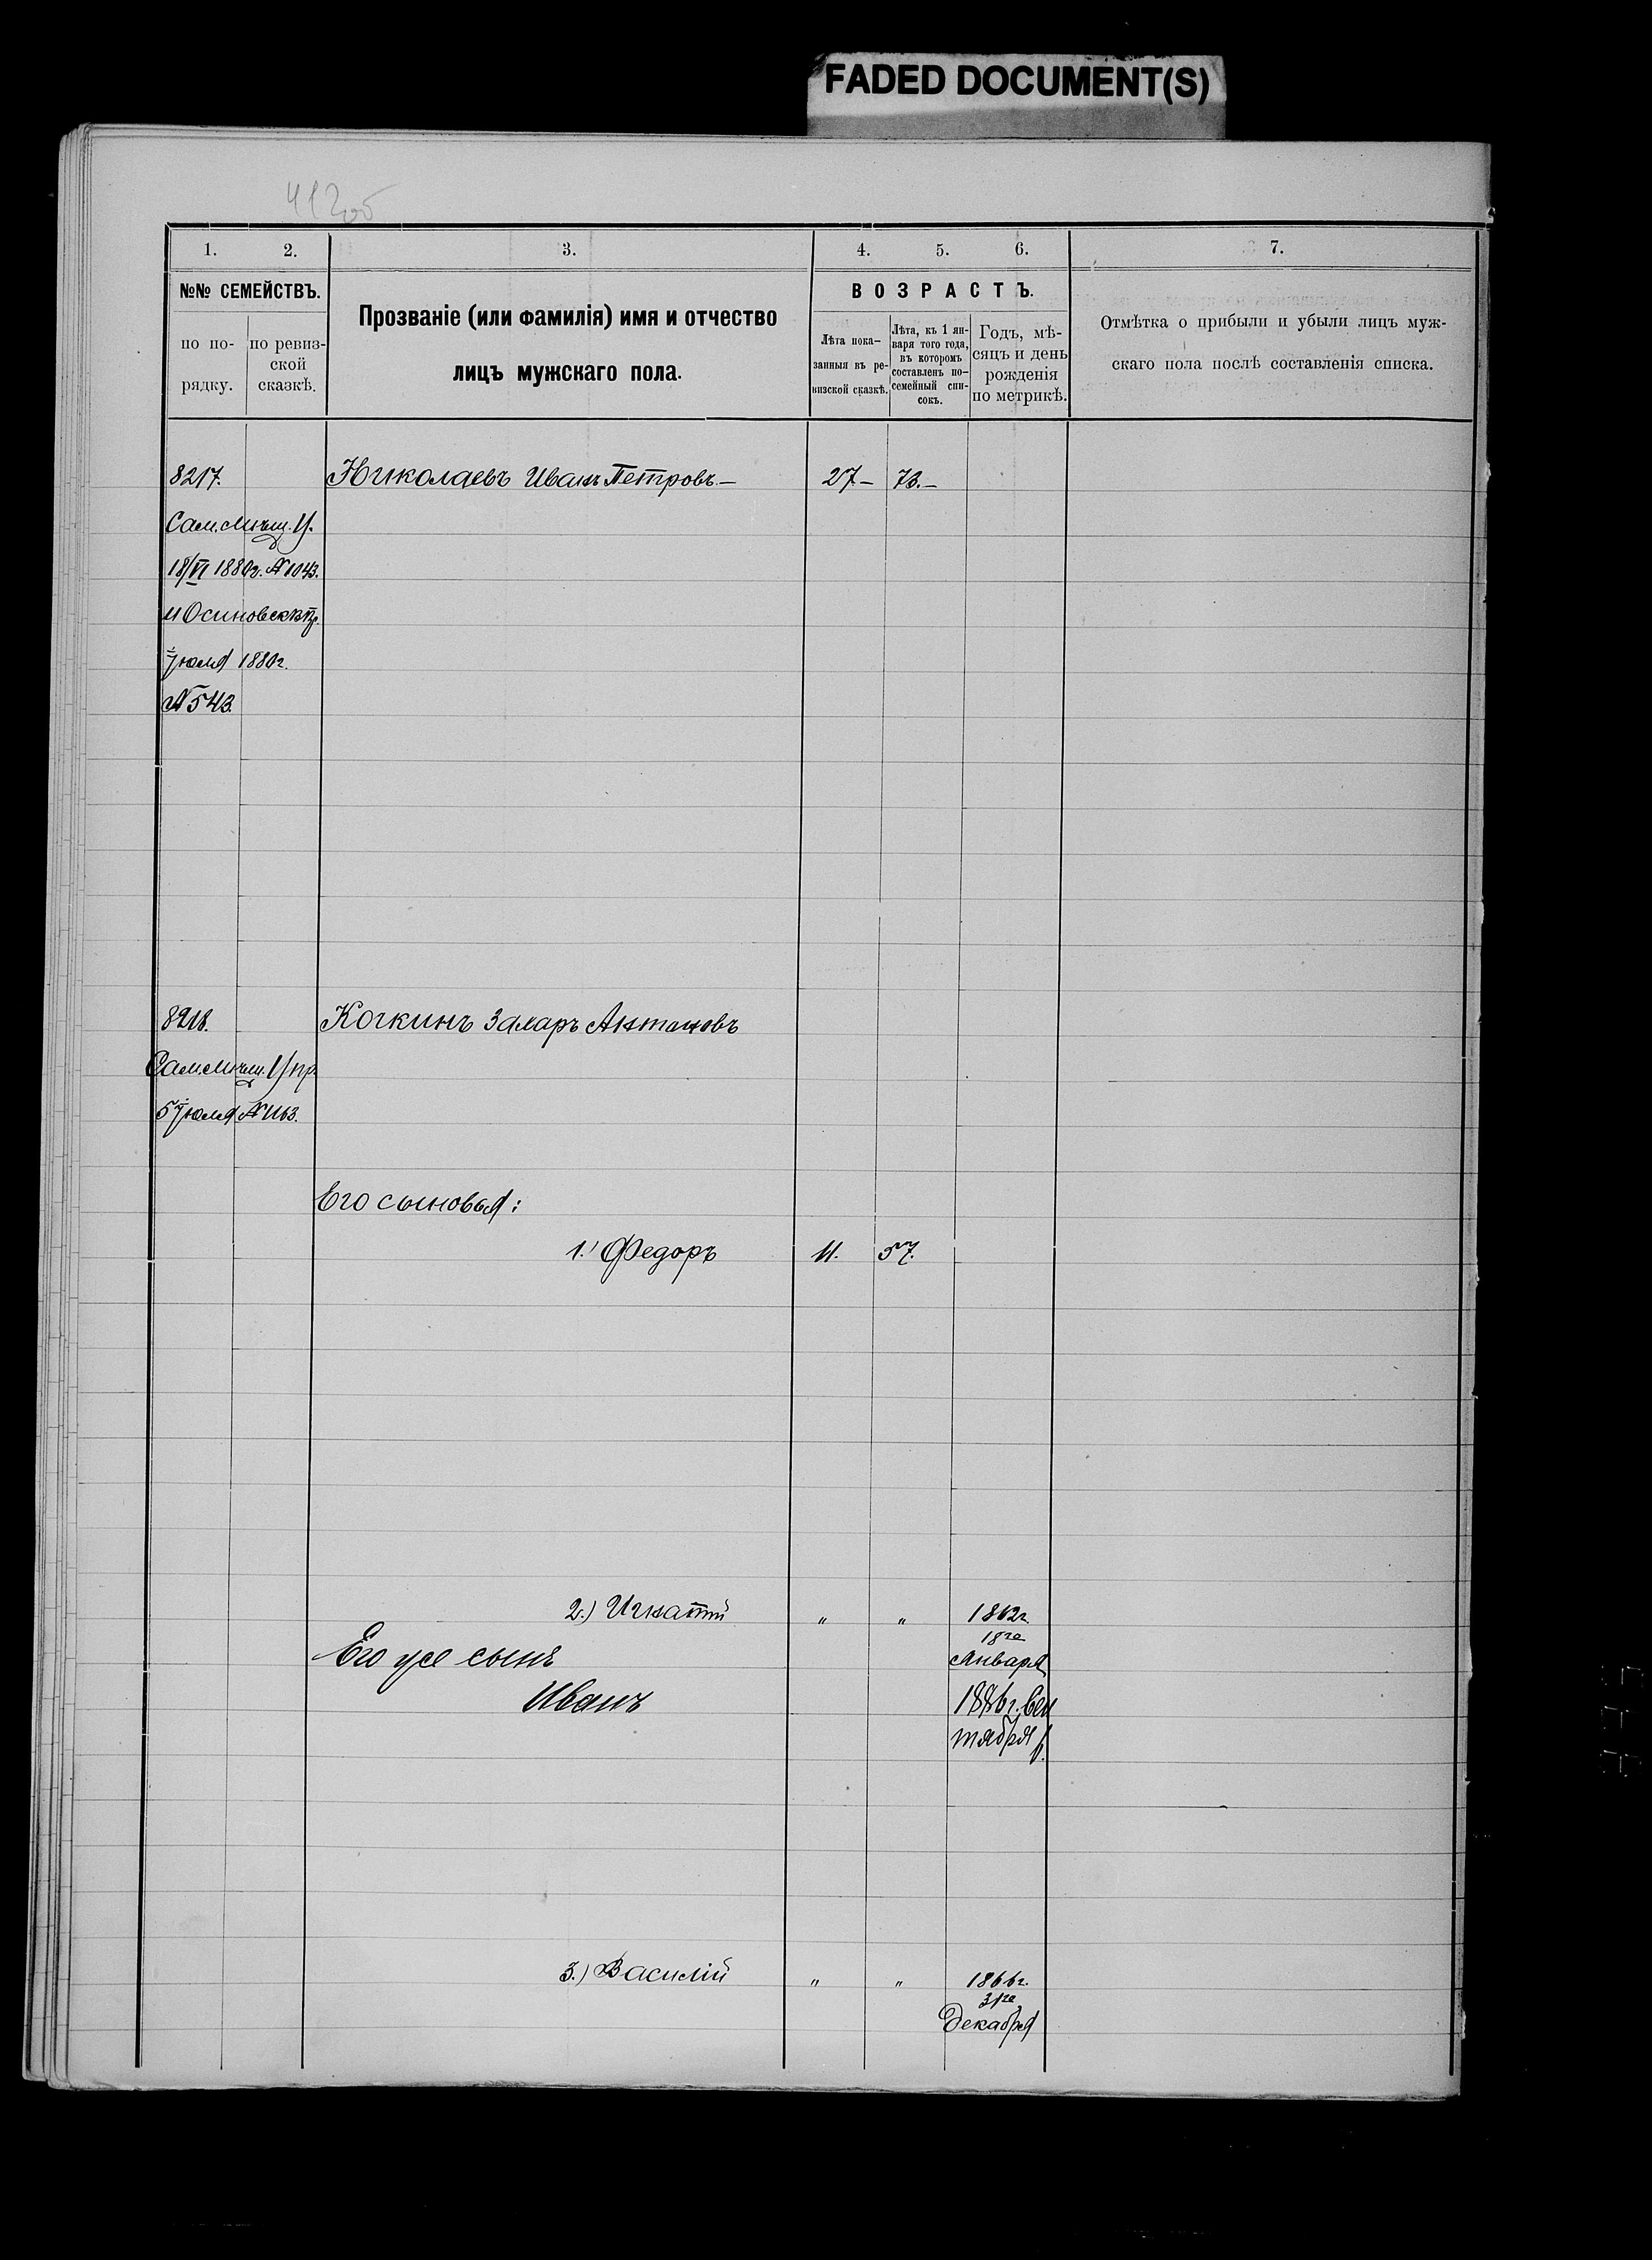 FADED DOCUMENT(S)
412об
1. 2. 3. 4. 5. 6. 7.
№№ СЕМЕЙСТВЪ.
по по-
рядку.
по ревиз-
ской
сказкѣ.
Прозваніе (или фамилія) имя и отчество
лицъ мужскаго пола.
ВОЗРАСТЪ.
Лѣта пока-
занныя въ ре-
визской сказкѣ.
Лѣта, къ 1 ян-
варя того года,
въ которомъ
составленъ по-
семейный спи-
сокъ.
Годъ, мѣ-
сяцъ и день
рожденія
по метрикѣ.
Отмѣтка о прибыли и убыли лицъ муж-
скаго пола послѣ составленія списка.
8217. Николаевъ Иванъ Петровъ.— 27— 73.—
Сам. мѣщ. У.
18/VI 1880г. №1043.
и Осиновск.
Іюля 1880г.
№543.
8218. Кочкинъ Захаръ Антоновъ
Сам. мѣщ. У/пр.
5 Іюля №1163.
Его сыновья:
1.) Федоръ 11. 57.
2.) Игнатій " " 1862г.
18го
Января
Его же сынъ
Иванъ 1886г. Сен
тября
3.) Василій " " 1866г.
31го
Декабря